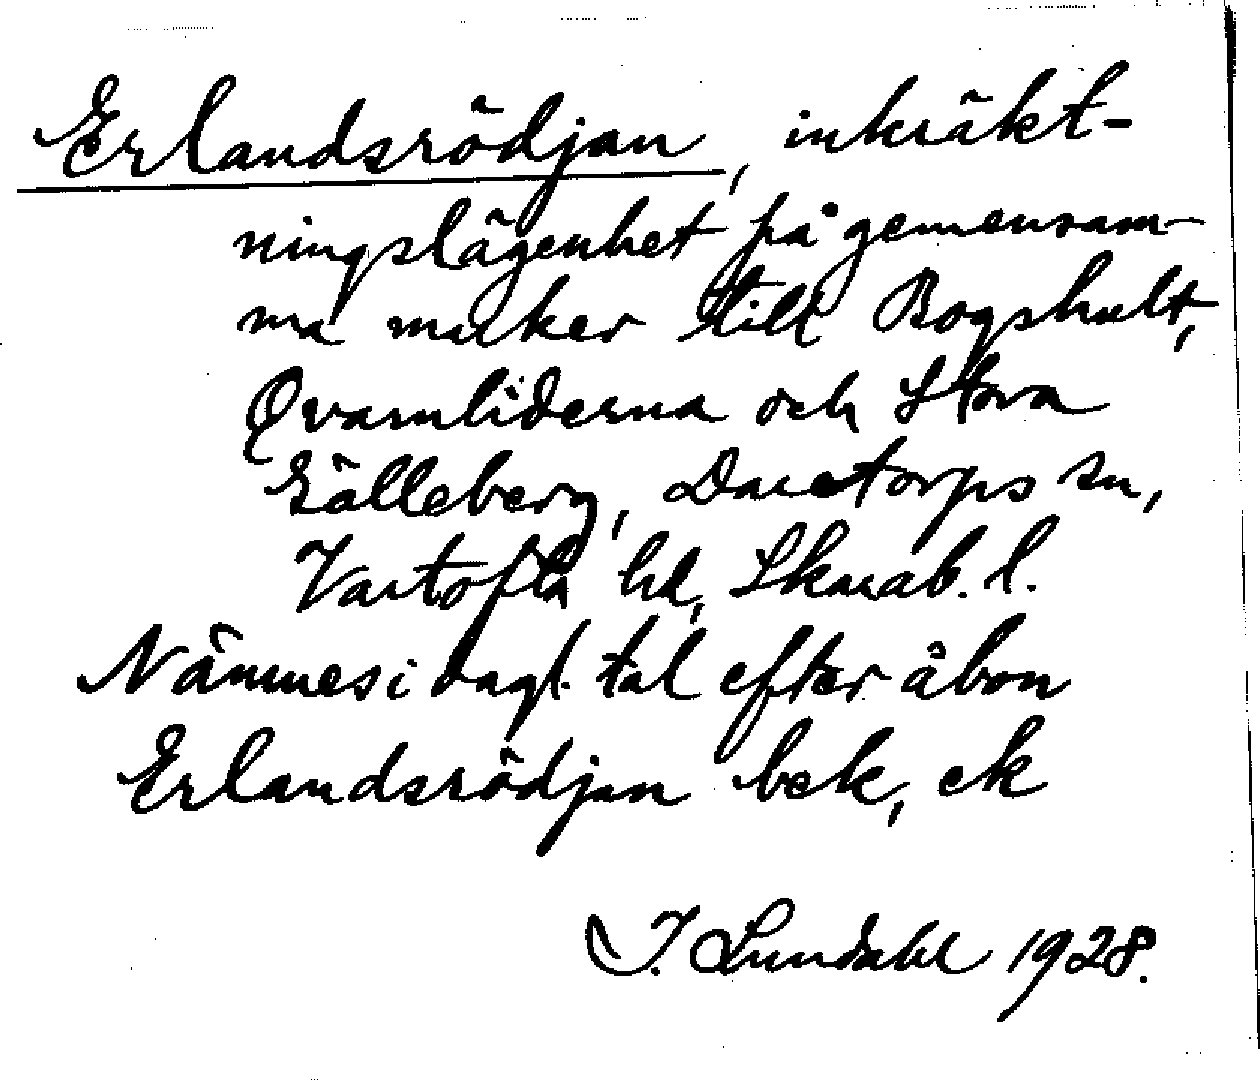 Erlandsrödjan, inkräkt-
ningslägenhet på gemensam-
ma marker till Bogshult,
Qvarnliderna och Stora
Gälleberg, Daretorps sn,
Vartofta hd, Skarab. l.
Nämnes i dagl. tal efter åbon
Erlandsrödjan bek, ek
I. Lundahl 1928.